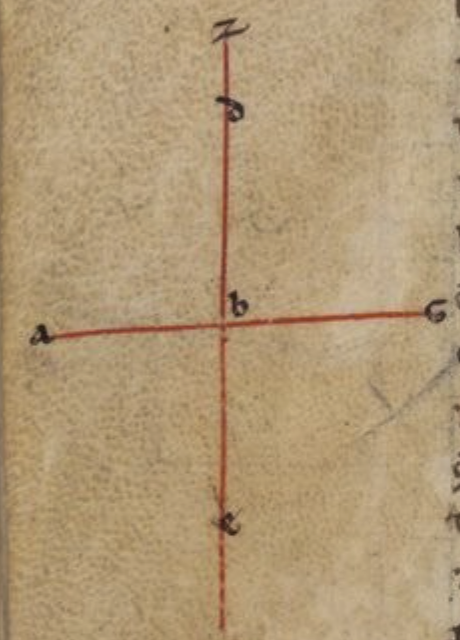 z
d
b
a G
e